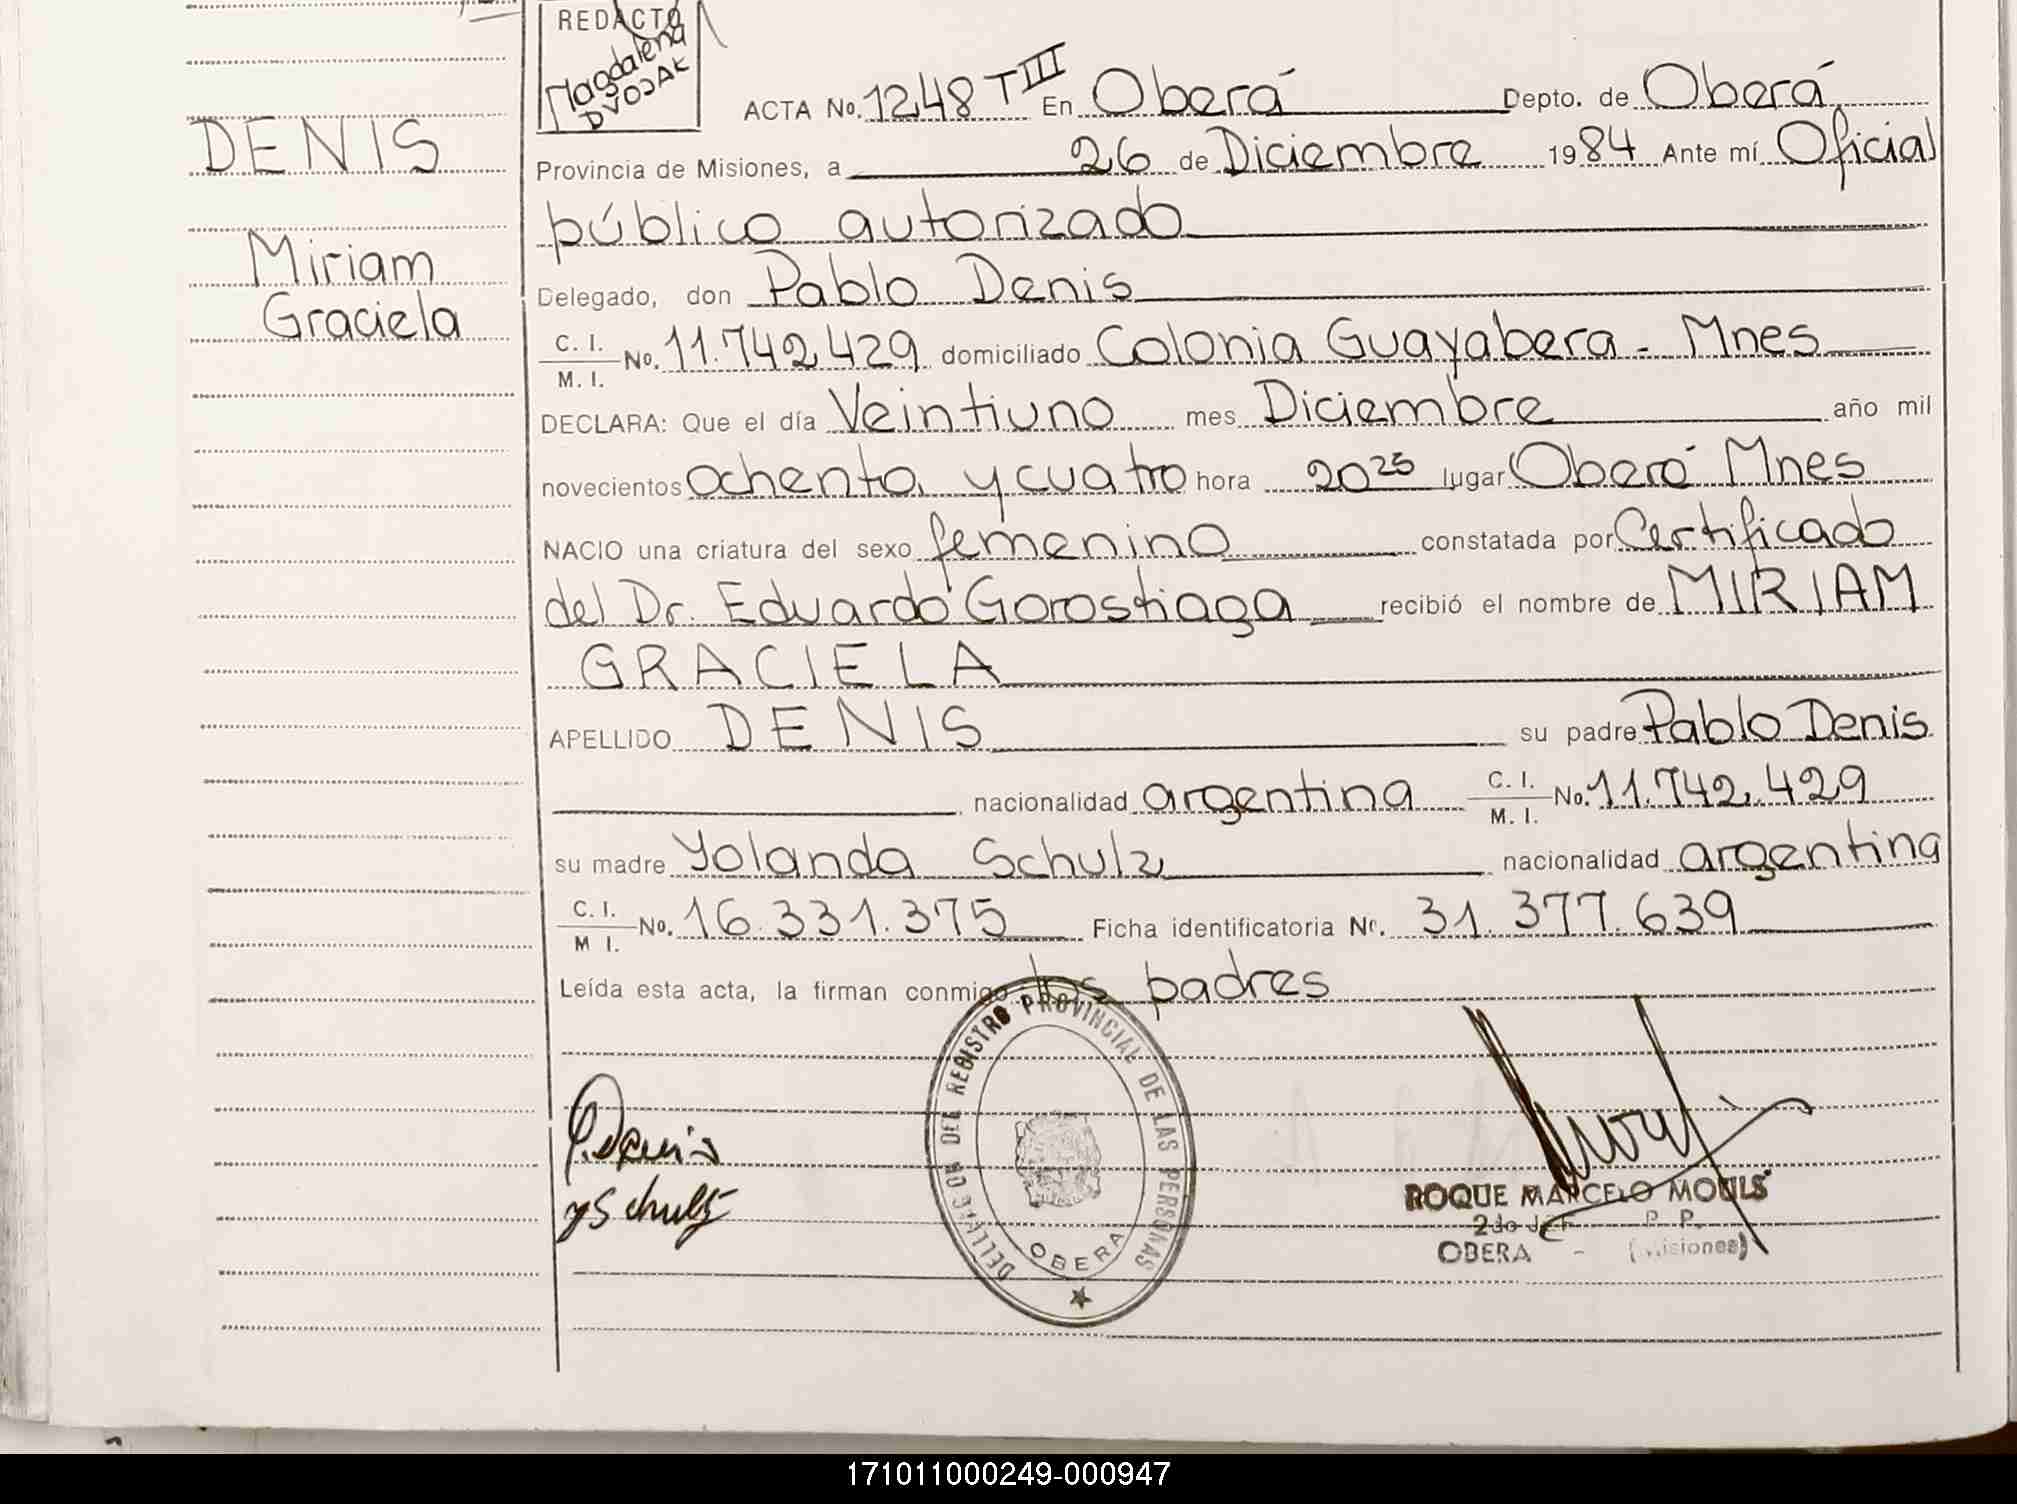 REDACTO
Magdalena
DVOJAK
ACTA No. 1248 T III En Oberá Depto. de Oberá
DENIS
Provincia de Misiones, a 26 de Diciembre 1984 Ante mí Oficial
público autorizado
Miriam
Graciela
Delegado, don Pablo Denis
C. I.
M. I. No. 11.742.429 domiciliado Colonia Guayabera - Mnes
DECLARA: Que el día Veintiuno mes Diciembre año mil
novecientos ochenta y cuatro hora 20 25 lugar Oberá Mnes
NACIO una criatura del sexo femenino constatada por Certificado
del Dr. Eduardo Gorostiaga recibió el nombre de MIRIAM
GRACIELA
APELLIDO DENIS su padre Pablo Denis
nacionalidad argentina C. I. M. I. No. 11.742.429
su madre Yolanda Schulz nacionalidad argentina
C. I. M I. No. 16.331.375 Ficha identificatoria Nº. 31.377.639
Leída esta acta, la firman conmigo los padres
DEL REGISTRO PROVINCIAL DE LAS PERSONAS
OBERA
P. Denis
y Schulz
ROQUE MARCELO MOULS
2do P. P.
OBERA - (Misiones)
171011000249-000947